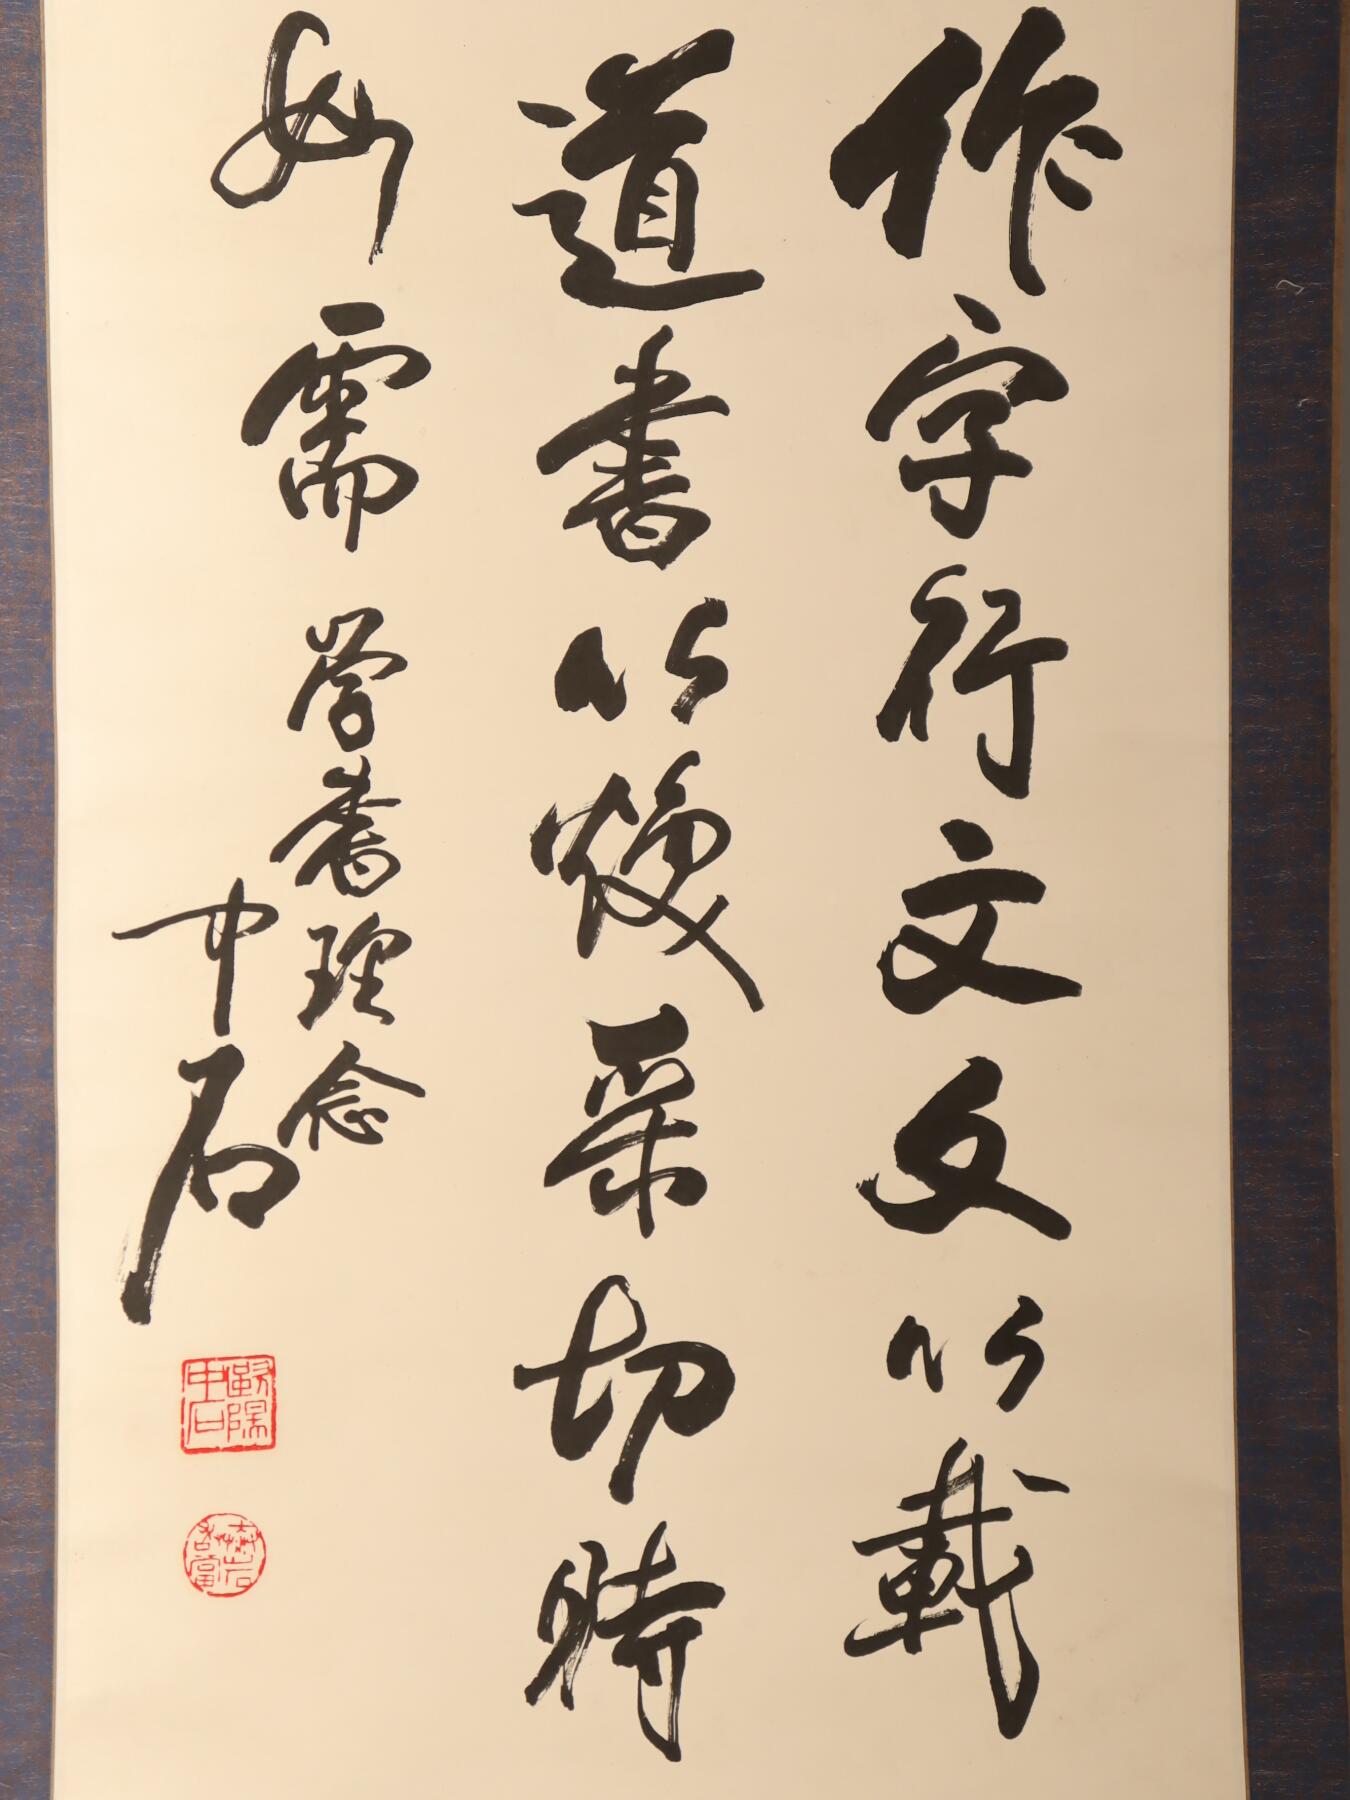 作字行文文以載
道書以煥采切時
如需 學書理念
中石
歐陽中石